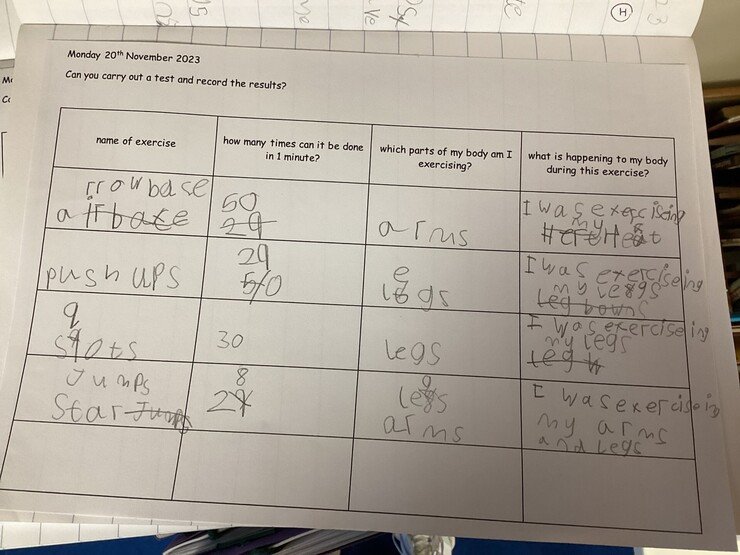 H
Monday 20th November 2023
Can you carry out a test and record the results?
name of exercise
how many times can it be done
in 1 minute?
which parts of my body am I
exercising?
what is happening to my body
during this exercise?
rrowbase
a
50
29
arms
I was exercising
my
push ups
29
50
e
legs
I was exerciseing
my legs
leg
q
spots
30
legs
I was exerciseing
my legs
leg
Jumps
Star Jumps
8
29
legs
arms
I was exerciseing
my arms
and legs